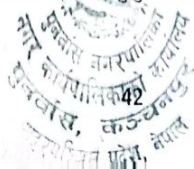 पुनर्वास नगरपालिका
नगर कार्यपालिकाको कार्यालय
42
पुनर्वास, कञ्चनपुर
सुदूरपश्चिम प्रदेश, नेपाल